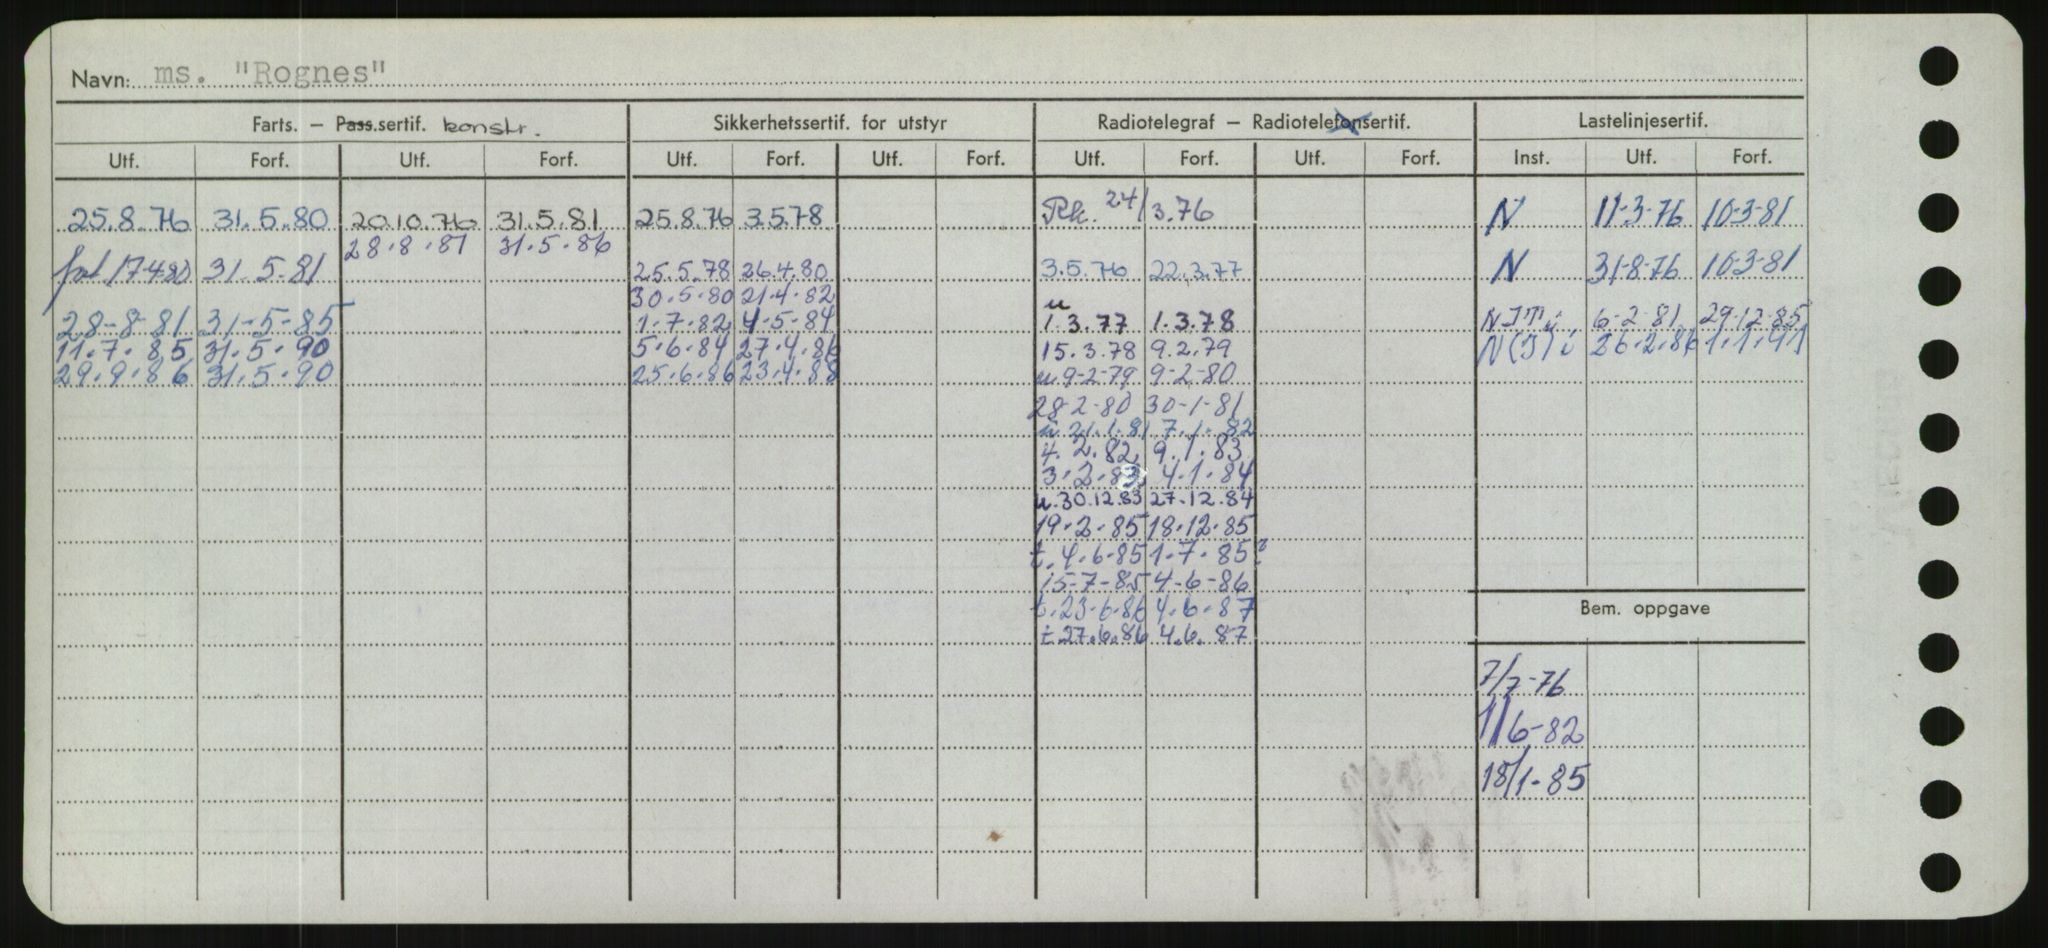 Navn: ms. "Rognes"
Farts. — Pass.sertif. konstr. Sikkerhetssertif. for utstyr Radiotelegraf — Radiotelefonsertif. Lastelinjesertif.
Utf. Forf. Utf. Forf. Utf. Forf. Utf. Forf. Utf. Forf. Utf. Forf. Inst. Utf. Forf.
25.8.76 31.5.80 20.10.76 31.5.81 25.8.76 3.5.78 24/3.76 N 11-3-76 10-3-81
28.8.81 31.5.86
17-4-80 31.5.81 25.5.78 26.4.80 3.5.76 22.3.77 N 31-8-76 10-3-81
30.5.80 21.4.82 u
28-8-81 31-5-85 1.7.82 4.5.84 1.3.77 1.3.78 6-2-81 29-12-85
11.7.85 31.5.90 5.6.84 27.4.86 15.3.78 9.2.79 26.2.86 1.1.91
29.9.86 31.5.90 25.6.86 23.4.88 u 9-2-79 9-2-80
28-2-80 30-1-81
u. 21.1.81 7.1.82
4.2.82 9.1.83
3.2.83 4.1.84
u. 30.12.83 27.12.84
19.2.85 18.12.85
t. 4.6.85 1.7.85?
15-7-85 4-6-86
t. 23.6.86 4.6.87
t 27.6.86 4.6.87
Bem. oppgave
7/7-76
11/6-82
18/1-85